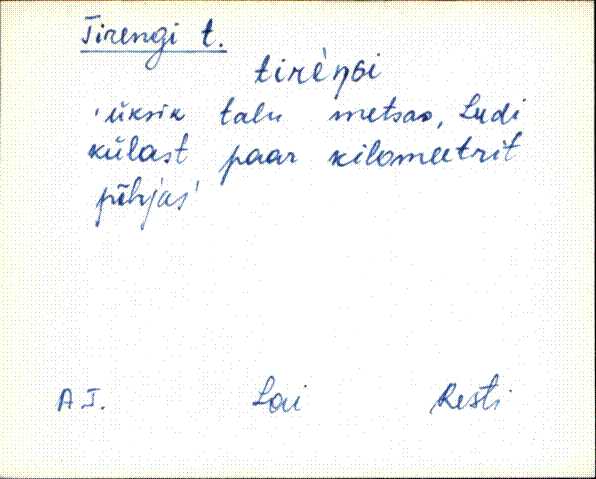 Tirengi t.
tirèŋgi
'üksik talu metsas, Ludi
külast paar kilomeetrit
põhjas'
A.J. Lai Resti